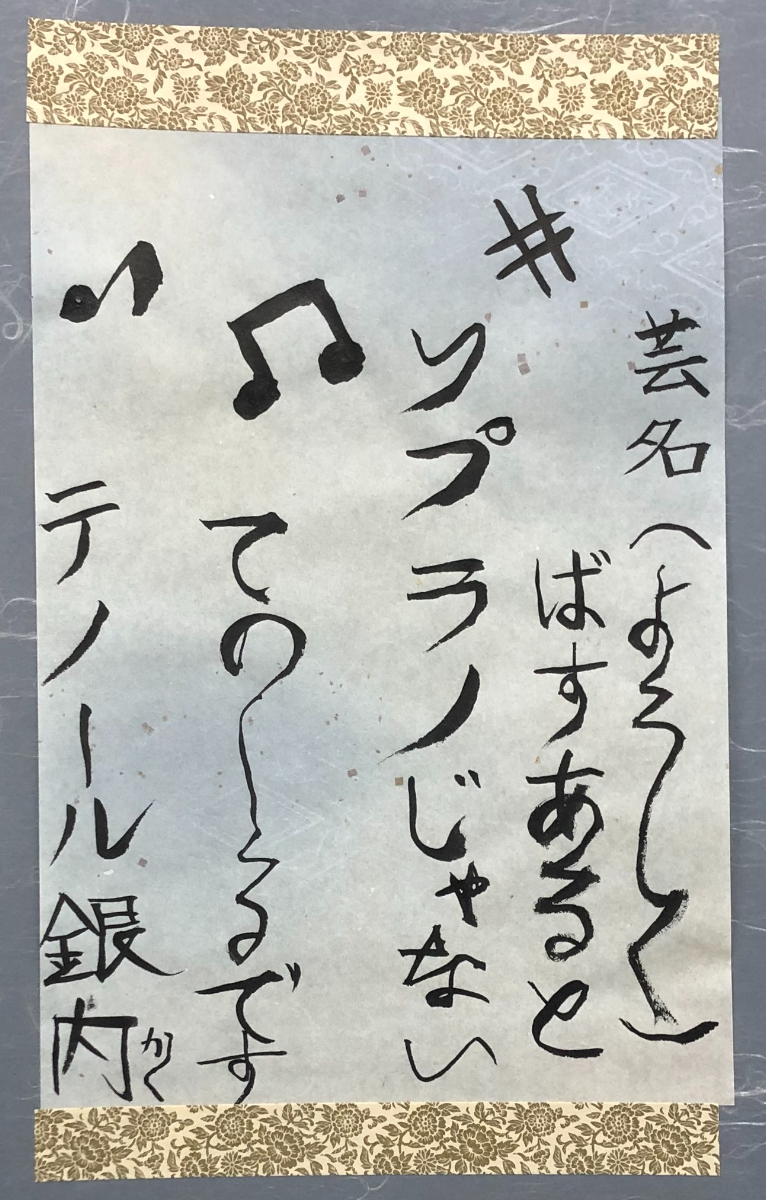 芸名（よろしく）
ばすあると
♯ソプラノじゃない
♫てのーるです
♪テノール銀内
かく